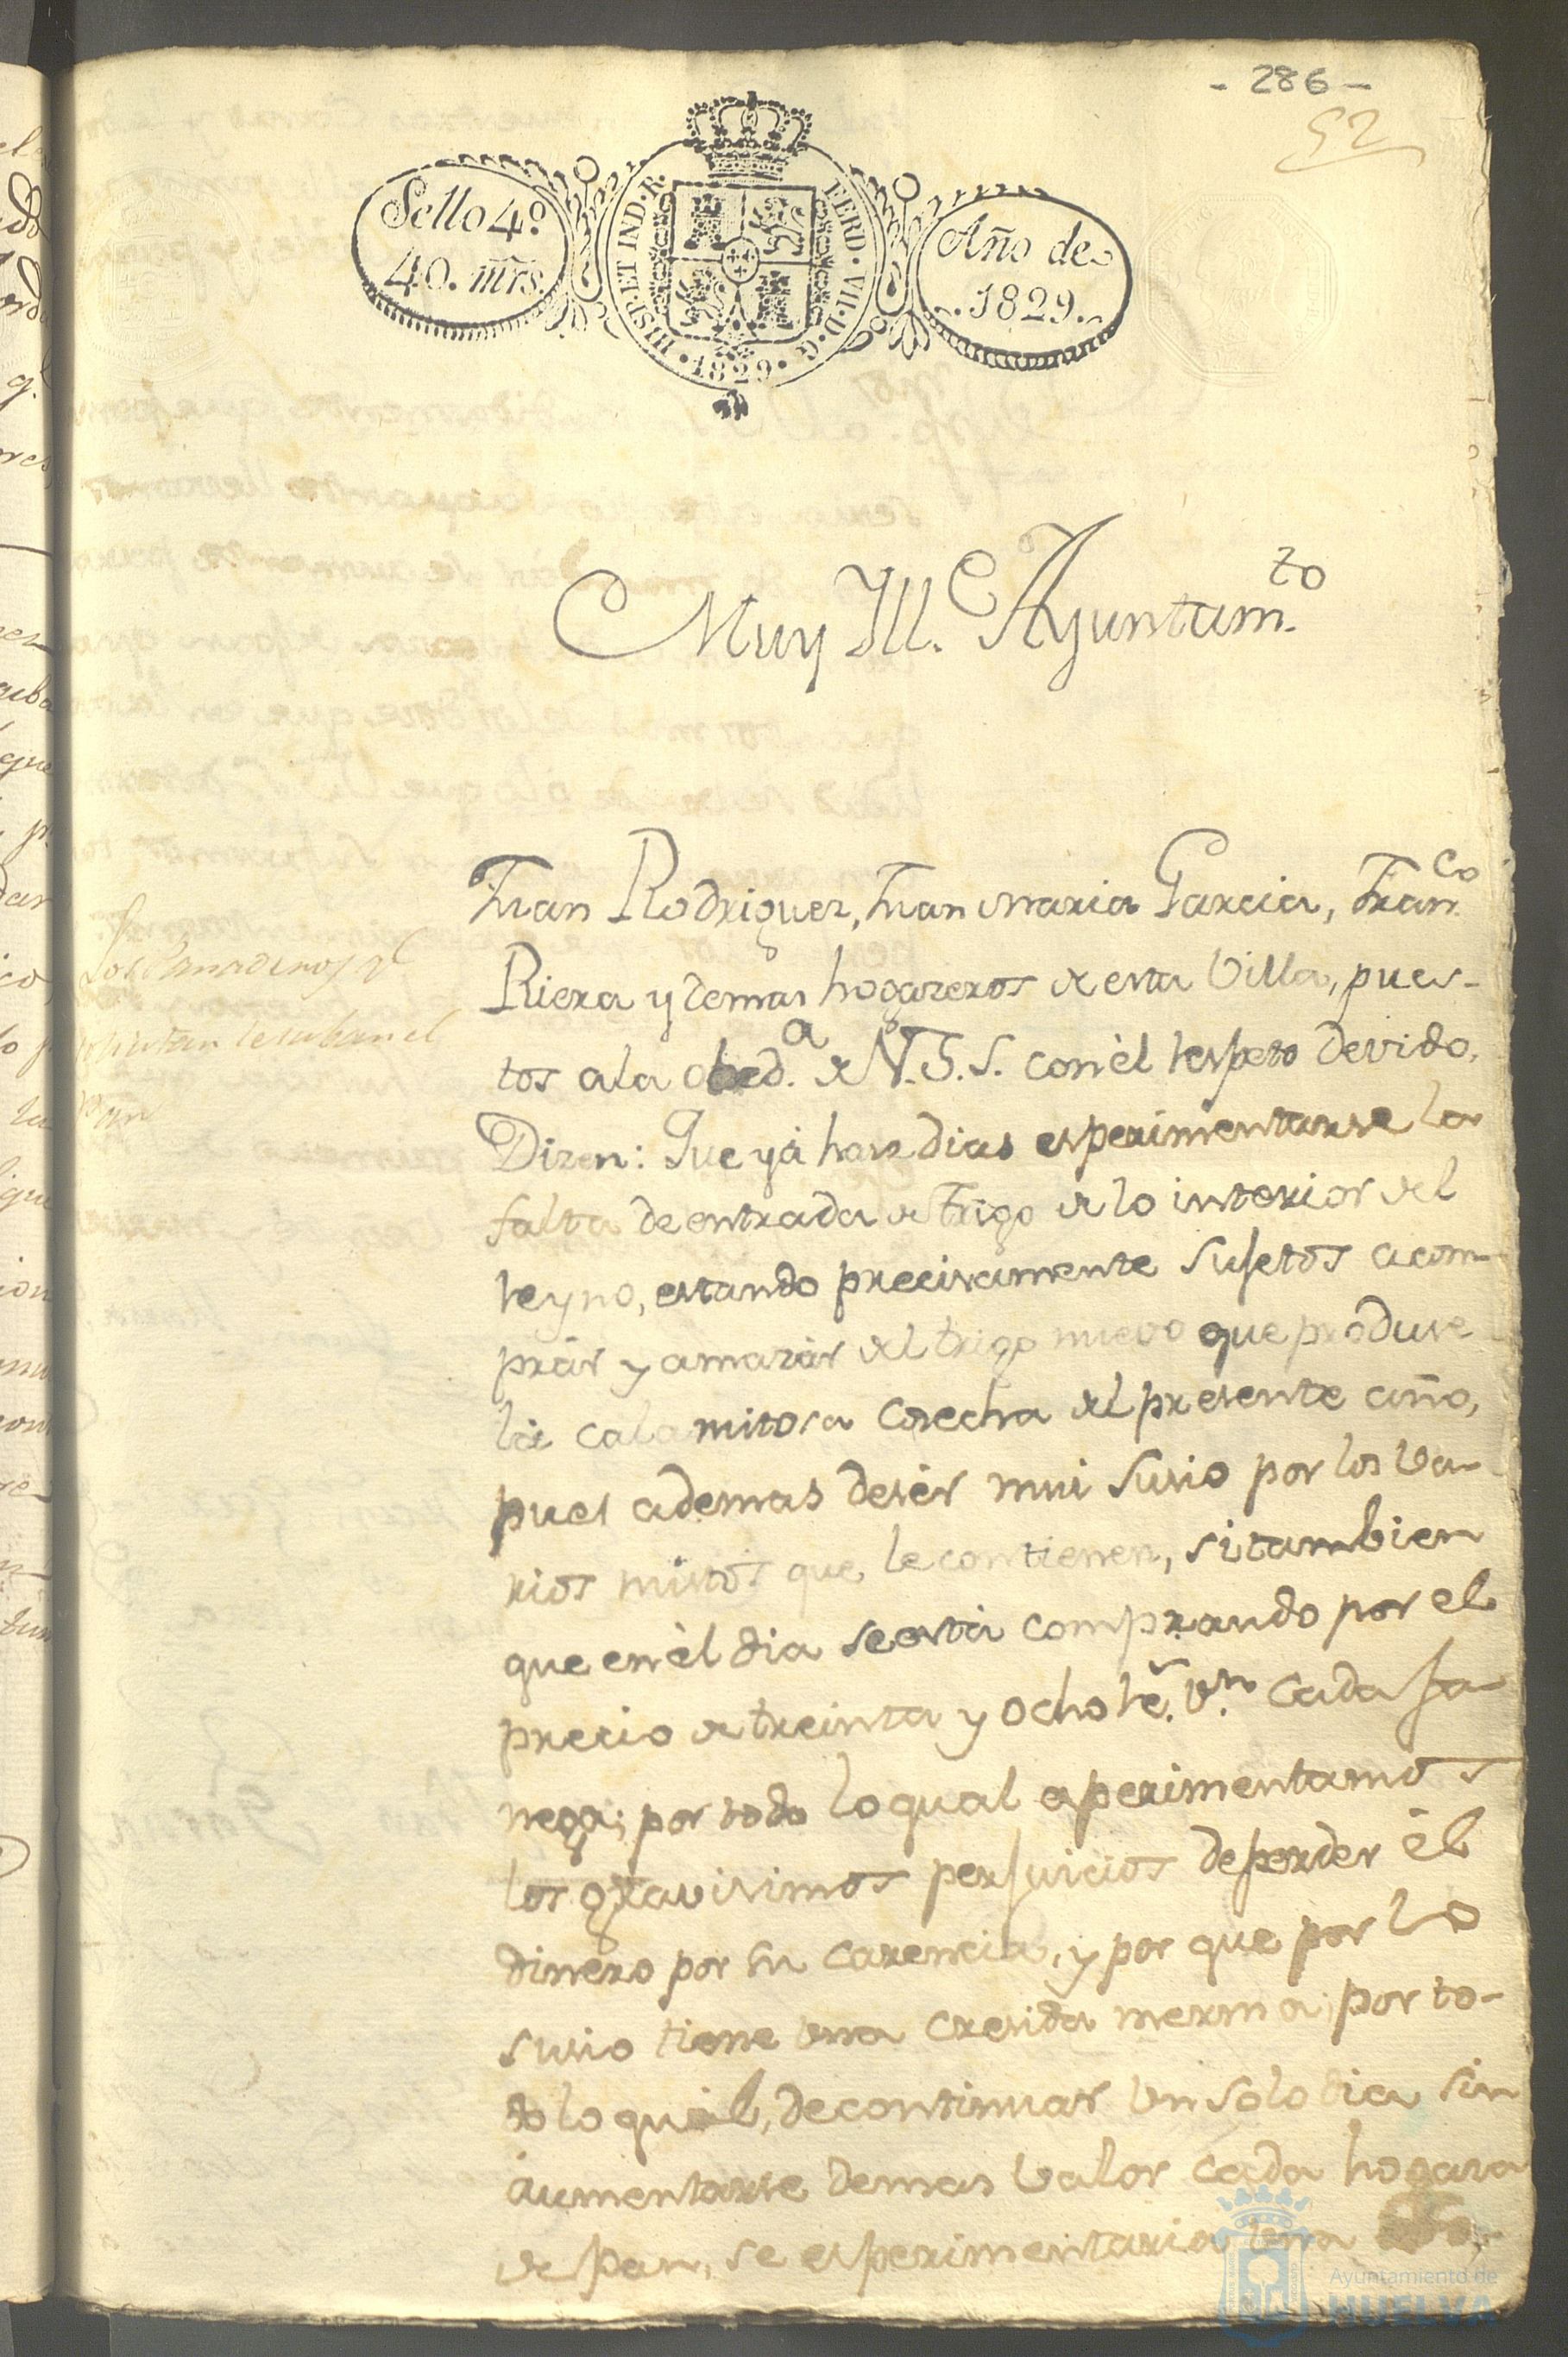 - 286 -
52
Sello 4º
40. mrs.
HISP. ET IND. R.
FERD. VII. D. G.
1829
Año de
1829.
Muy Ill.e Ayuntam.to
Juan Rodriguez, Juan maria Garcia, Fran.co
Riera y demas hogazeros de esta Villa, pues-
tos a la obed.a de V.S.S. con èl respeto devido,
Dizen: Que yá haze dias esperimentarse la
falta de entrada de Trigo de lo interior del
reyno, estando precisamente sujetos a com-
prár y amazár del trigo nuevo que produse
la calamitosa Cosecha del presente año,
pues ademas de sér mui susio por los va-
rios mistos que le contienen, si tambien
que en èl dia se está comprando por el
precio de treinta y ocho r.s v.n cada fa-
nega; por todo lo qual esperimentamos
los gravisimos perjuicios de perder èl
dinero por su carencia, y por que por lo
susio tiene una cresida merma; por to-
do lo quál, de continuar un solo dia sin
aumentarse demas valor cada hogaza
de pan, se esperimentaria una
Los Panaderos q.e
solicitan se suban el
Pan
Ayuntamiento de
HUELVA